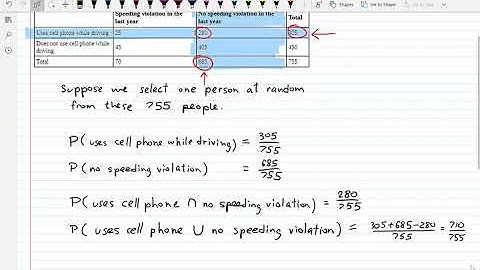 Speeding violation in the last year | No speeding violation in the last year | Total
Uses cell phone while driving | 25 | 280 | 305
Does not use cell phone while driving | 45 | 405 | 450
Total | 70 | 685 | 755
Suppose we select one person at random
from these 755 people.
P(uses cell phone while driving) = 305/755
P(no speeding violation) = 685/755
P(uses cell phone ∩ no speeding violation) = 280/755
P(uses cell phone ∪ no speeding violation) = 305+685-280/755 = 710/755